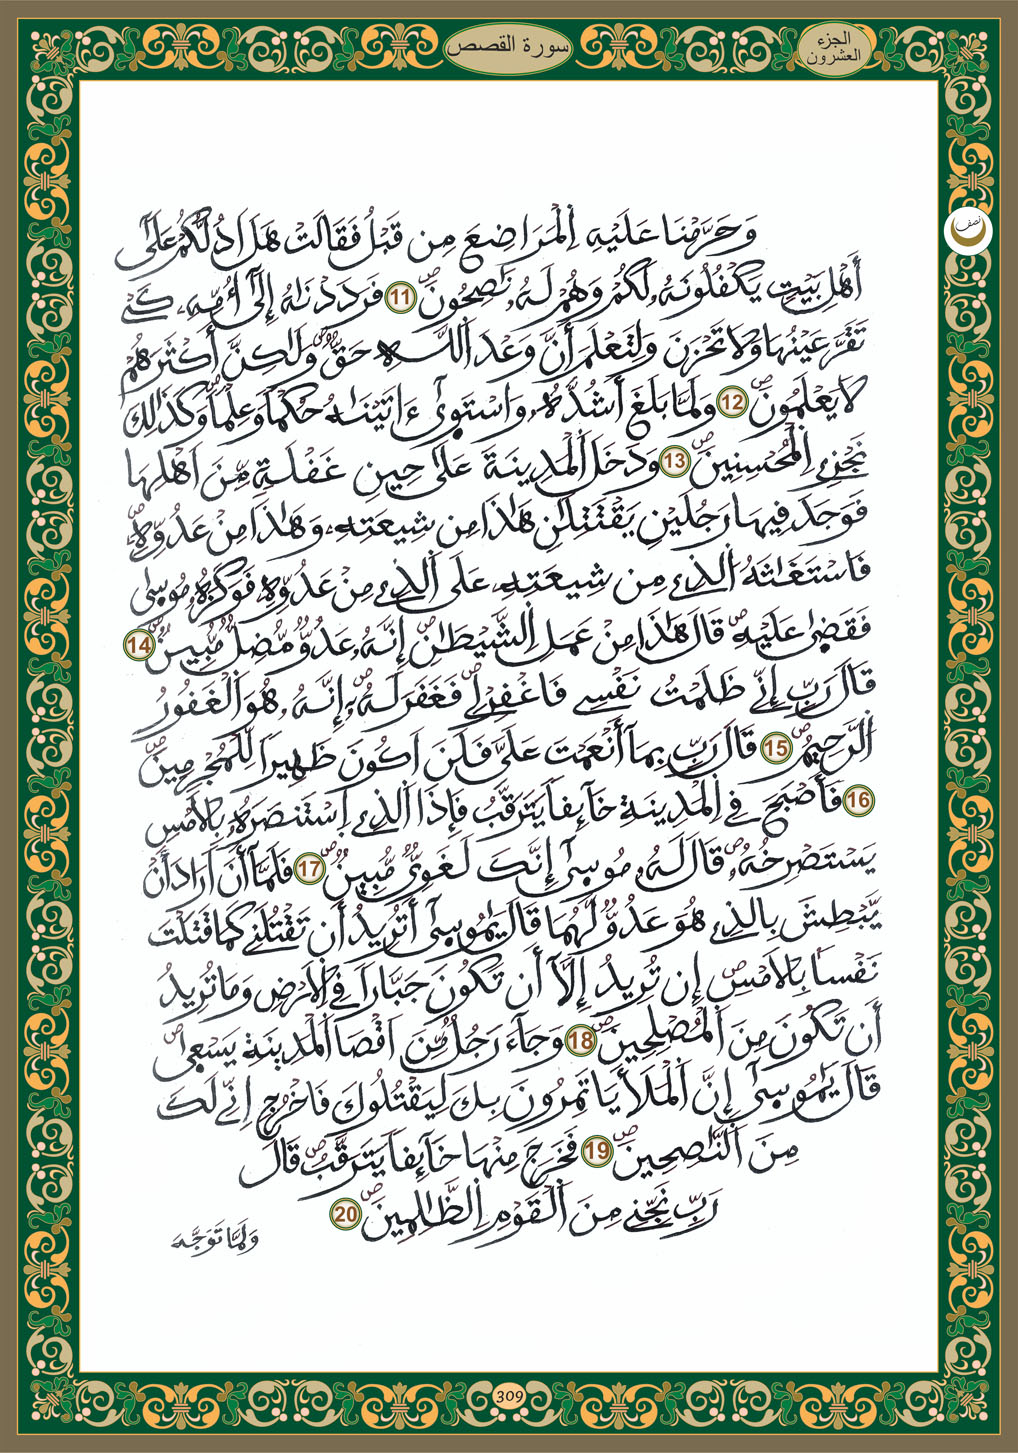 سورة القصص
الجزء
العشرون
نصف
وَحَرَّمْنَا عَلَيْهِ اِ۬لْمَرَاضِعَ مِن قَبْلُ فَقَالَتْ هَلَ اَدُلُّكُمْ عَلَىٰٓ
أَهْلِ بَيْتٖ يَكْفُلُونَهُۥ لَكُمْ وَهُمْ لَهُۥ نَٰصِحُونَۖ 11 فَرَدَدْنَٰهُ إِلَىٰٓ أُمِّهِۦ كَےْ
تَقَرَّ عَيْنُهَا وَلَا تَحْزَنَ وَلِتَعْلَمَ أَنَّ وَعْدَ اَ۬للَّهِ حَقّٞۖ وَلَٰكِنَّ أَكْثَرَهُمْ
لَا يَعْلَمُونَۖ 12 وَلَمَّا بَلَغَ أَشُدَّهُۥ وَاسْتَوَىٰٓ ءَاتَيْنَٰهُ حُكْماٗ وَعِلْماٗۖ وَكَذَٰلِكَ
نَجْزِے اِ۬لْمُحْسِنِينَۖ 13 وَدَخَلَ اَ۬لْمَدِينَةَ عَلَىٰ حِينِ غَفْلَةٖ مِّنَ اَهْلِهَا
فَوَجَدَ فِيهَا رَجُلَيْنِ يَقْتَتِلَٰنِ هَٰذَا مِن شِيعَتِهِۦ وَهَٰذَا مِنْ عَدُوِّهِۦۖ
فَاسْتَغَٰثَهُ اُ۬لذِے مِن شِيعَتِهِۦ عَلَى اَ۬لذِے مِنْ عَدُوِّهِۦ فَوَكَزَهُۥ مُوسَىٰ
فَقَضَىٰ عَلَيْهِۖ قَالَ هَٰذَا مِنْ عَمَلِ اِ۬لشَّيْطَٰنِۖ إِنَّهُۥ عَدُوّٞ مُّضِلّٞ مُّبِينٞۖ 14
قَالَ رَبِّ إِنِّے ظَلَمْتُ نَفْسِے فَاغْفِرْ لِےۖ فَغَفَرَ لَهُۥٓۖ إِنَّهُۥ هُوَ اَ۬لْغَفُورُ
اُ۬لرَّحِيمُۖ 15 قَالَ رَبِّ بِمَآ أَنْعَمْتَ عَلَيَّ فَلَنَ اَكُونَ ظَهِيراٗ لِّلْمُجْرِمِينَۖ
16 فَأَصْبَحَ فِے اِ۬لْمَدِينَةِ خَآئِفاٗ يَتَرَقَّبُ فَإِذَا اَ۬لذِے اِ۪سْتَنصَرَهُۥ بِالَامْسِ
يَسْتَصْرِخُهُۥۖ قَالَ لَهُۥ مُوسَىٰٓ إِنَّكَ لَغَوِيّٞ مُّبِينٞۖ 17 فَلَمَّآ أَنَ اَرَادَ أَنْ
يَّبْطِشَ بِالذِے هُوَ عَدُوّٞ لَّهُمَا قَالَ يَٰمُوسَىٰٓ أَتُرِيدُ أَن تَقْتُلَنِے كَمَا قَتَلْتَ
نَفْساَۢ بِالَامْسِۖ إِن تُرِيدُ إِلَّآ أَن تَكُونَ جَبَّاراٗ فِے اِ۬لَارْضِ وَمَا تُرِيدُ
أَن تَكُونَ مِنَ اَ۬لْمُصْلِحِينَۖ 18 وَجَآءَ رَجُلٞ مِّنَ اَقْصَا اَ۬لْمَدِينَةِ يَسْعَىٰۖ
قَالَ يَٰمُوسَىٰٓ إِنَّ اَ۬لْمَلَأَ يَاتَمِرُونَ بِكَ لِيَقْتُلُوكَ فَاخْرُجِ اِنِّے لَكَ
مِنَ اَ۬لنَّٰصِحِينَۖ 19 فَخَرَجَ مِنْهَا خَآئِفاٗ يَتَرَقَّبُۖ قَالَ
رَبِّ نَجِّنِے مِنَ اَ۬لْقَوْمِ اِ۬لظَّٰلِمِينَۖ 20
وَلَمَّا تَوَجَّهَ
309